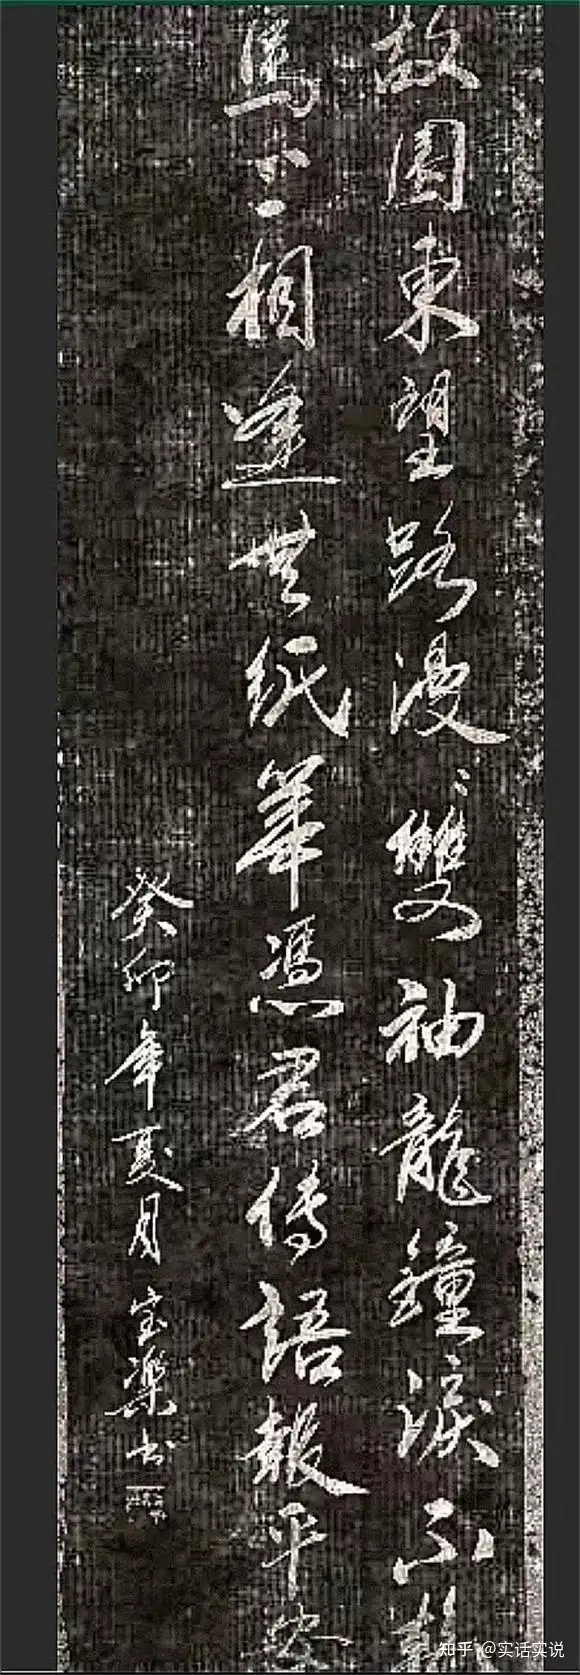 故園東望路漫々雙袖龍鐘淚不乾
馬上相逢無紙筆憑君傳語報平安
癸卯年夏月宝樂书
知乎 @实话实说